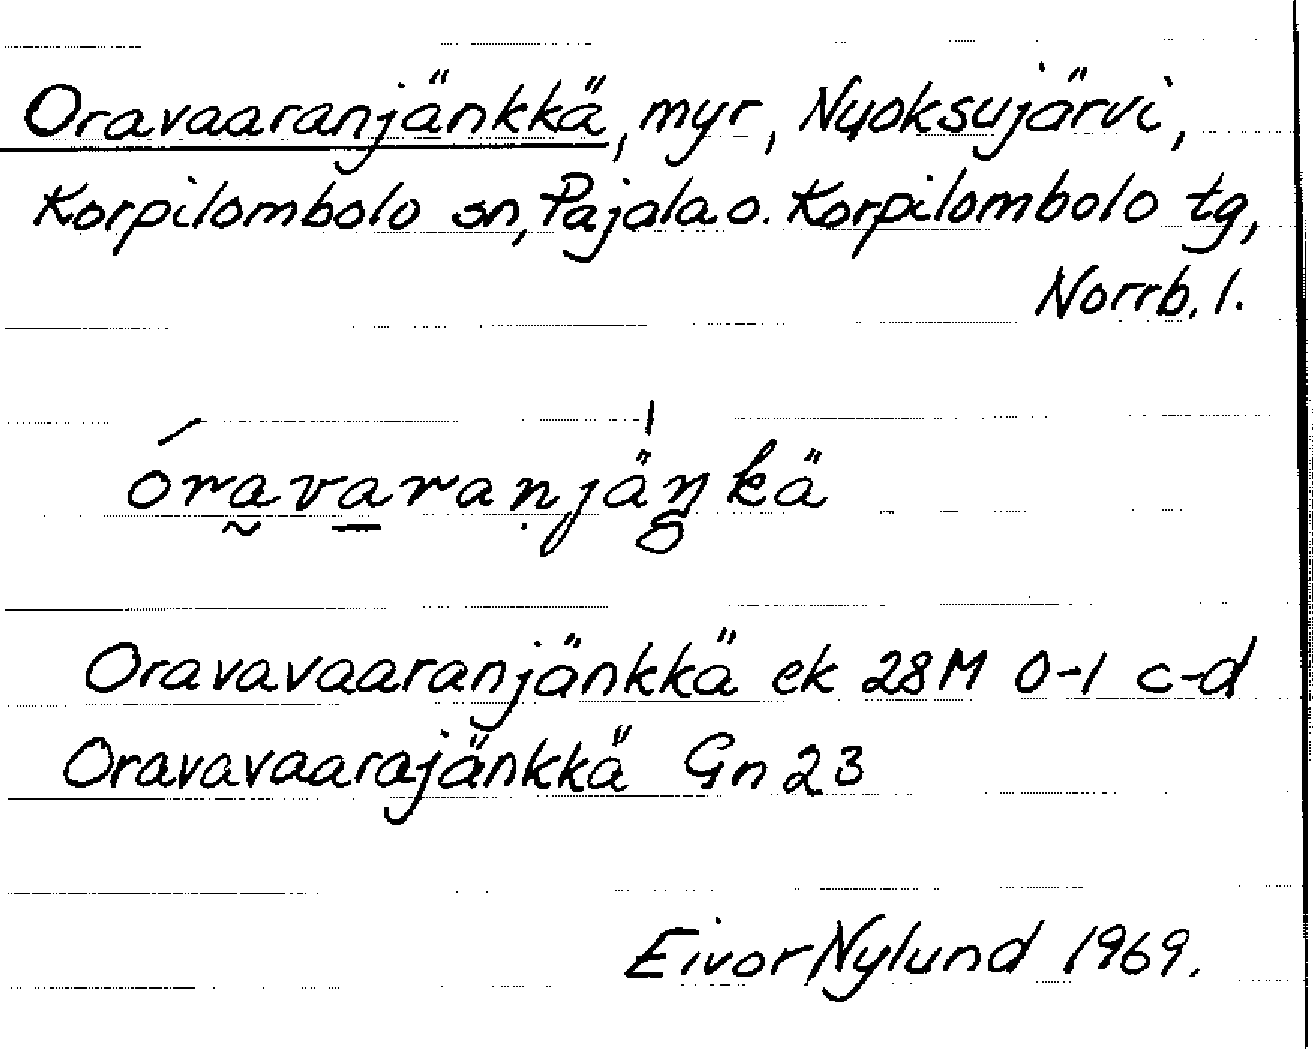 Oravaaranjänkkä, myr, Nuoksujärvi,
Korpilombolo sn, Pajala o. Korpilombolo tg,
Norrb. l.
óra̰va̱raṇjäŋkä
Oravavaaranjänkkä ek 28M 0-1 c-d
Oravavaarajänkkä Gn 23
Eivor Nylund 1969.